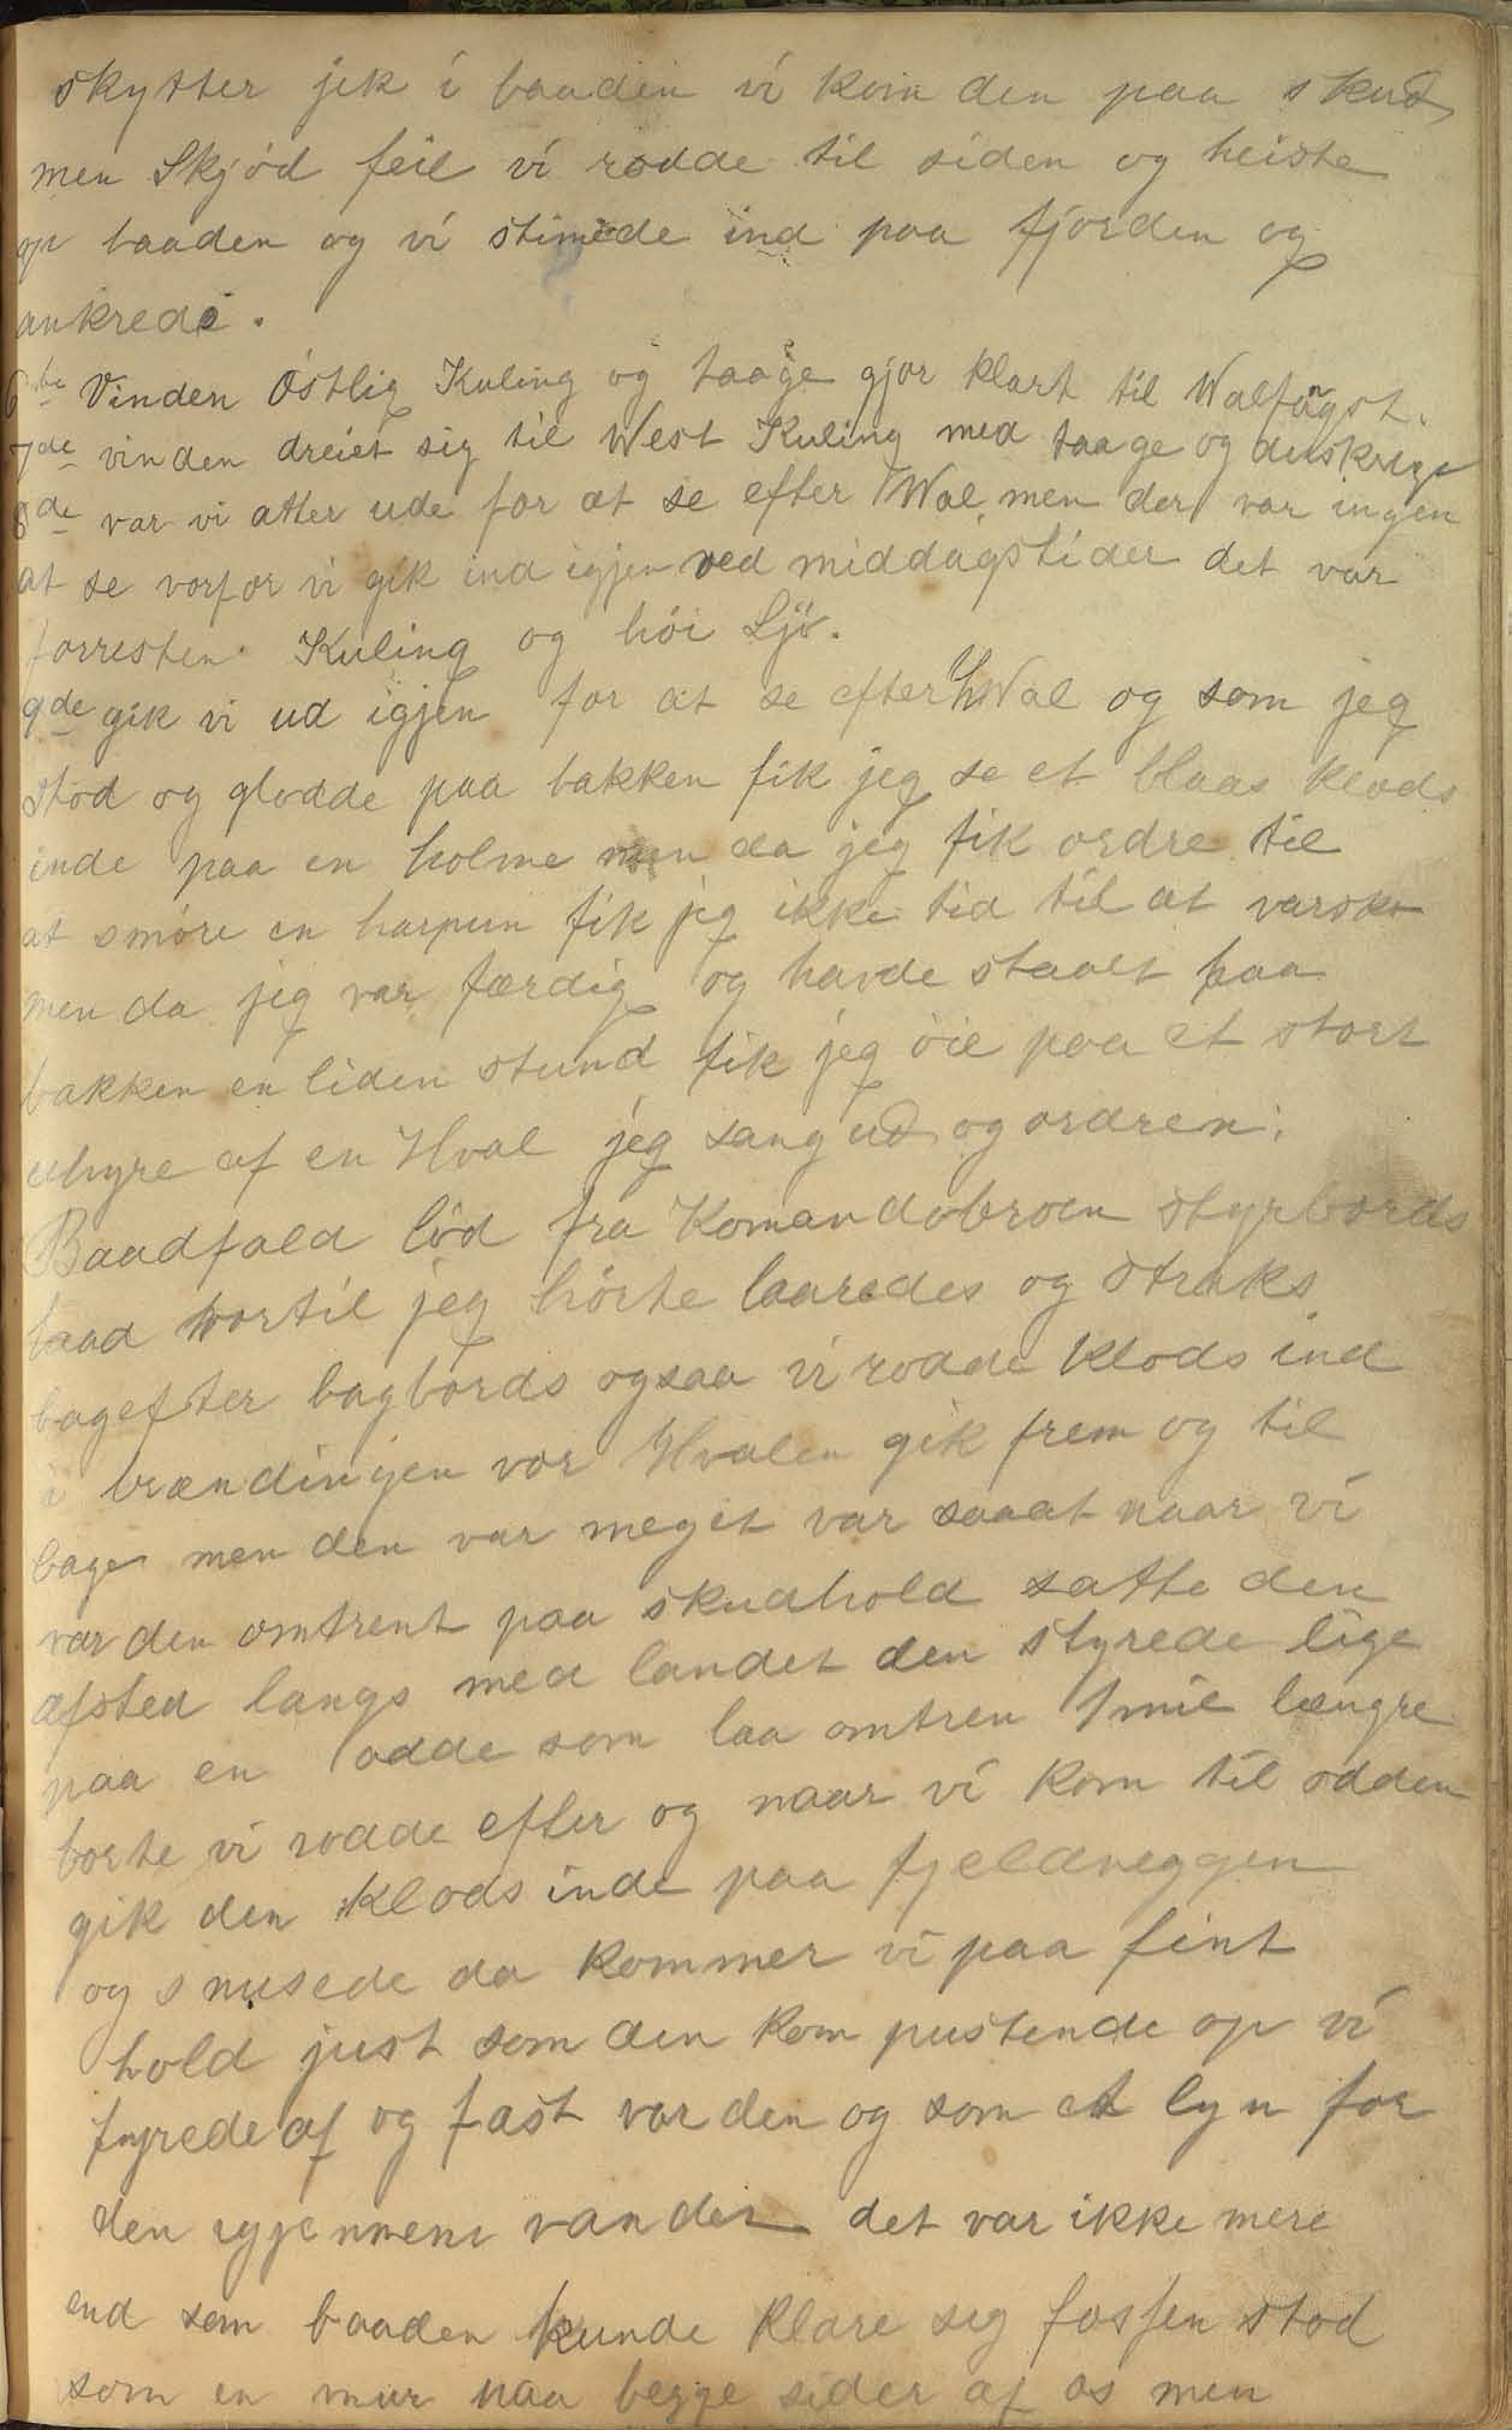 skytter jik i baaden vi kom den paa skud
men Skjød feil vi rodde til siden og heiste
op baaden og vi stimede ind paa fjorden og
ankrede.
6te Vinden Østlig Kuling og taage gjør klart til Walfangst.
7de vinden dreiet sig til West Kuling med taage og
8de var vi atter ude for at se efter Wal men der var ingen
at se vorfor vi gik ind igjen ved middagstider det var
forresten Kuling og høi Sjø.
9de gik vi ud igjen for at se efter Wal og som jeg
stod og glodde paa bakken fik jeg se et blaas klods
inde paa en holme men da jeg fik ordre til
at smøre en harpun fik jeg ikke tid til at varsko
men da jeg var færdig og havde staaet paa
bakken en liden stund fik jeg øie paa et stort
uhyre af en Hval jeg sang ud og ordren:
Baadfald lød fra Komandobroen styrbords
baad hvortil jeg hørte laaredes og straks
bagefter bagbords ogsaa vi rodde klods ind
i brændingen vor Hvalen gik frem og til
bage men den var meget var saaat naar vi
var den omtrent paa skudhold satte den
afsted langs med landet den styrede lige
paa en odde som laa omtren 1 mil længre
borte vi rodde efter og naar vi kom til odden
gik den klods inde paa fjeldveggen
og snusede da kommer vi paa fint
hold just som den kom pustende op vi
fyrede af og fast var den og som et lyn for
den igjennem vandet det var ikke mere
end som baaden kunde klare seg fossen stod
som en mur paa begge sider af os men